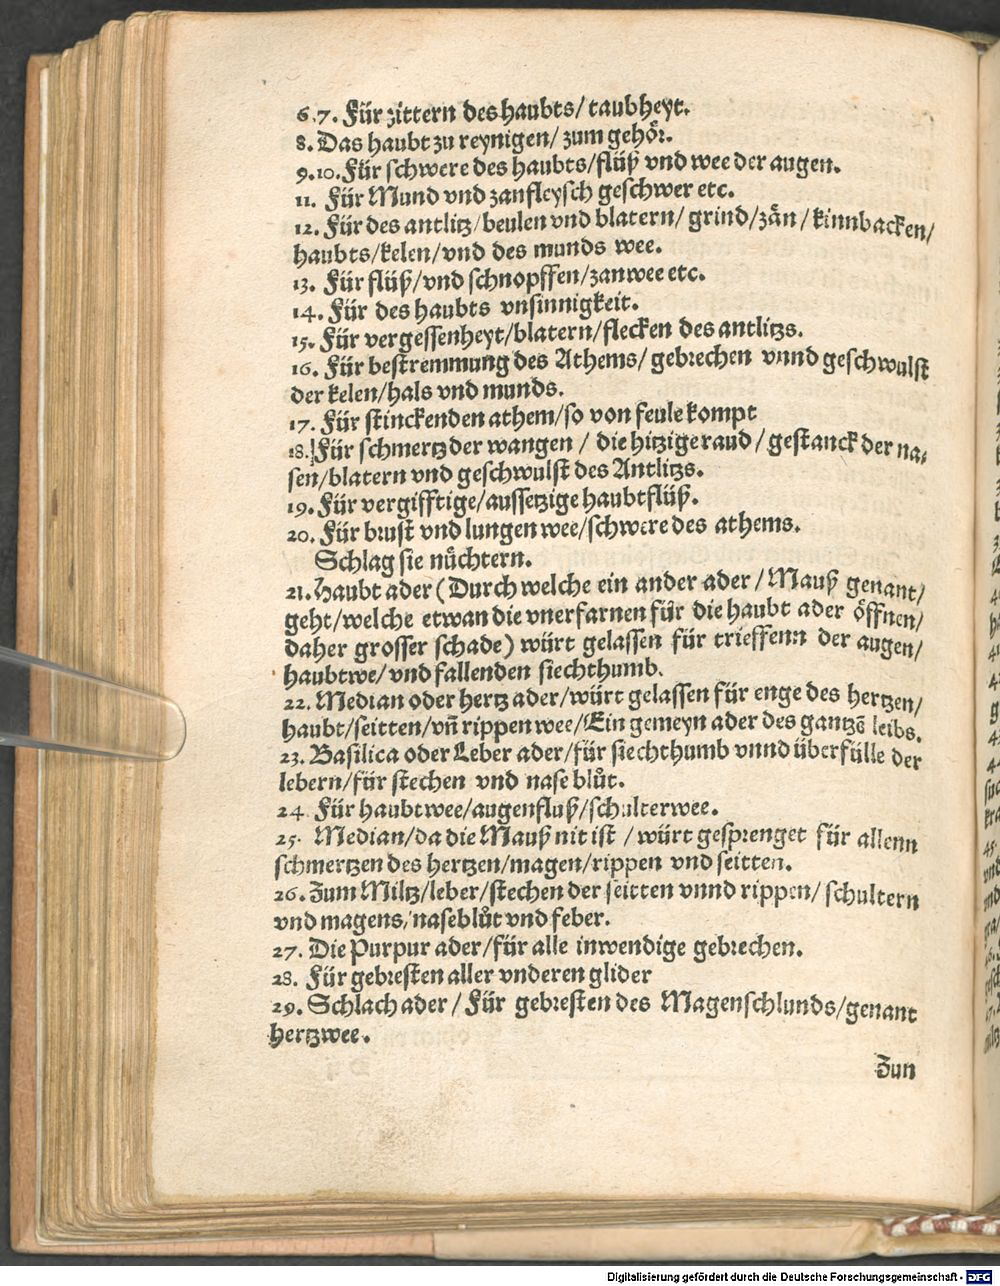 6.7. Für zittern des haubts/ taubheyt.
8. Das haubt zu reynigen/ zum gehör.
9.10. Für schwere des haubts/flüß vnd wee der augen.
11. Für Mund vnd zanfleysch geschwer etc.
12. Für des antlitz/beulen vnd blatern/ grind/zän/ kinnbacken/
haubts/kelen/vnd des munds wee.
13. Für flüß/vnd schnopffen/zanwee etc.
14. Für des haubts vnsinnigkeit.
15. Für vergessenheyt/blatern/flecken des antlitzs.
16. Für bestremmung des Athems/ gebrechen vnnd geschwulst
der kelen/hals vnd munds.
17. Für stinckenden athem/so von feule kompt
18. Für schmertz der wangen / die hitzige raud / gestanck der na-
sen/blatern vnd geschwulst des Antlitzs.
19. Für vergifftige/aussetzige haubtflüß.
20. Für brust vnd lungen wee/schwere des athems.
Schlag sie nüchtern.
21. Haubt ader (Durch welche ein ander ader / Mauß genant/
geht/welche etwan die vnerfarnen für die haubt ader öffnen/
daher grosser schade) würt gelassen für trieffenn der augen/
haubtwe/ vnd fallenden siechthumb.
22. Median oder hertz ader/würt gelassen für enge des hertzen/
haubt/seitten/vñ rippen wee/Ein gemeyn ader des gantzē leibs.
23. Basilica oder Leber ader/für siechthumb vnnd überfülle der
lebern/für stechen vnd nase blůt.
24. Für haubtwee/augenfluß/schulterwee.
25. Median/da die Mauß nit ist / würt gesprenget für allenn
schmertzen des hertzen/magen/rippen vnd seitten.
26. Zum Miltz/leber/stechen der seitten vnnd rippen/ schultern
vnd magens/naseblůt vnd feber.
27. Die Purpur ader/für alle inwendige gebrechen.
28. Für gebresten aller vnderen glider
29. Schlach ader / Für gebresten des Magenschlunds/genant
hertzwee.
Zun
Digitalisierung gefördert durch die Deutsche Forschungsgemeinschaft - DFG